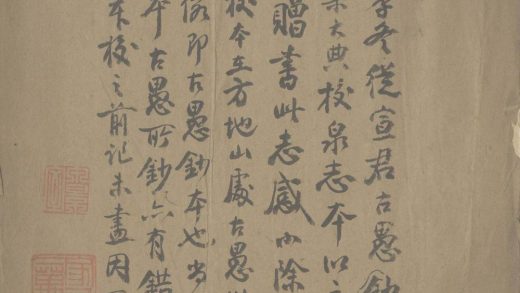 冬從宣君古愚鈔
大典校泉志本以
贈書此志感內除
校本在方地山處古愚
即古愚鈔本也當
本古愚所鈔亦有錯
本校之前記未盡因